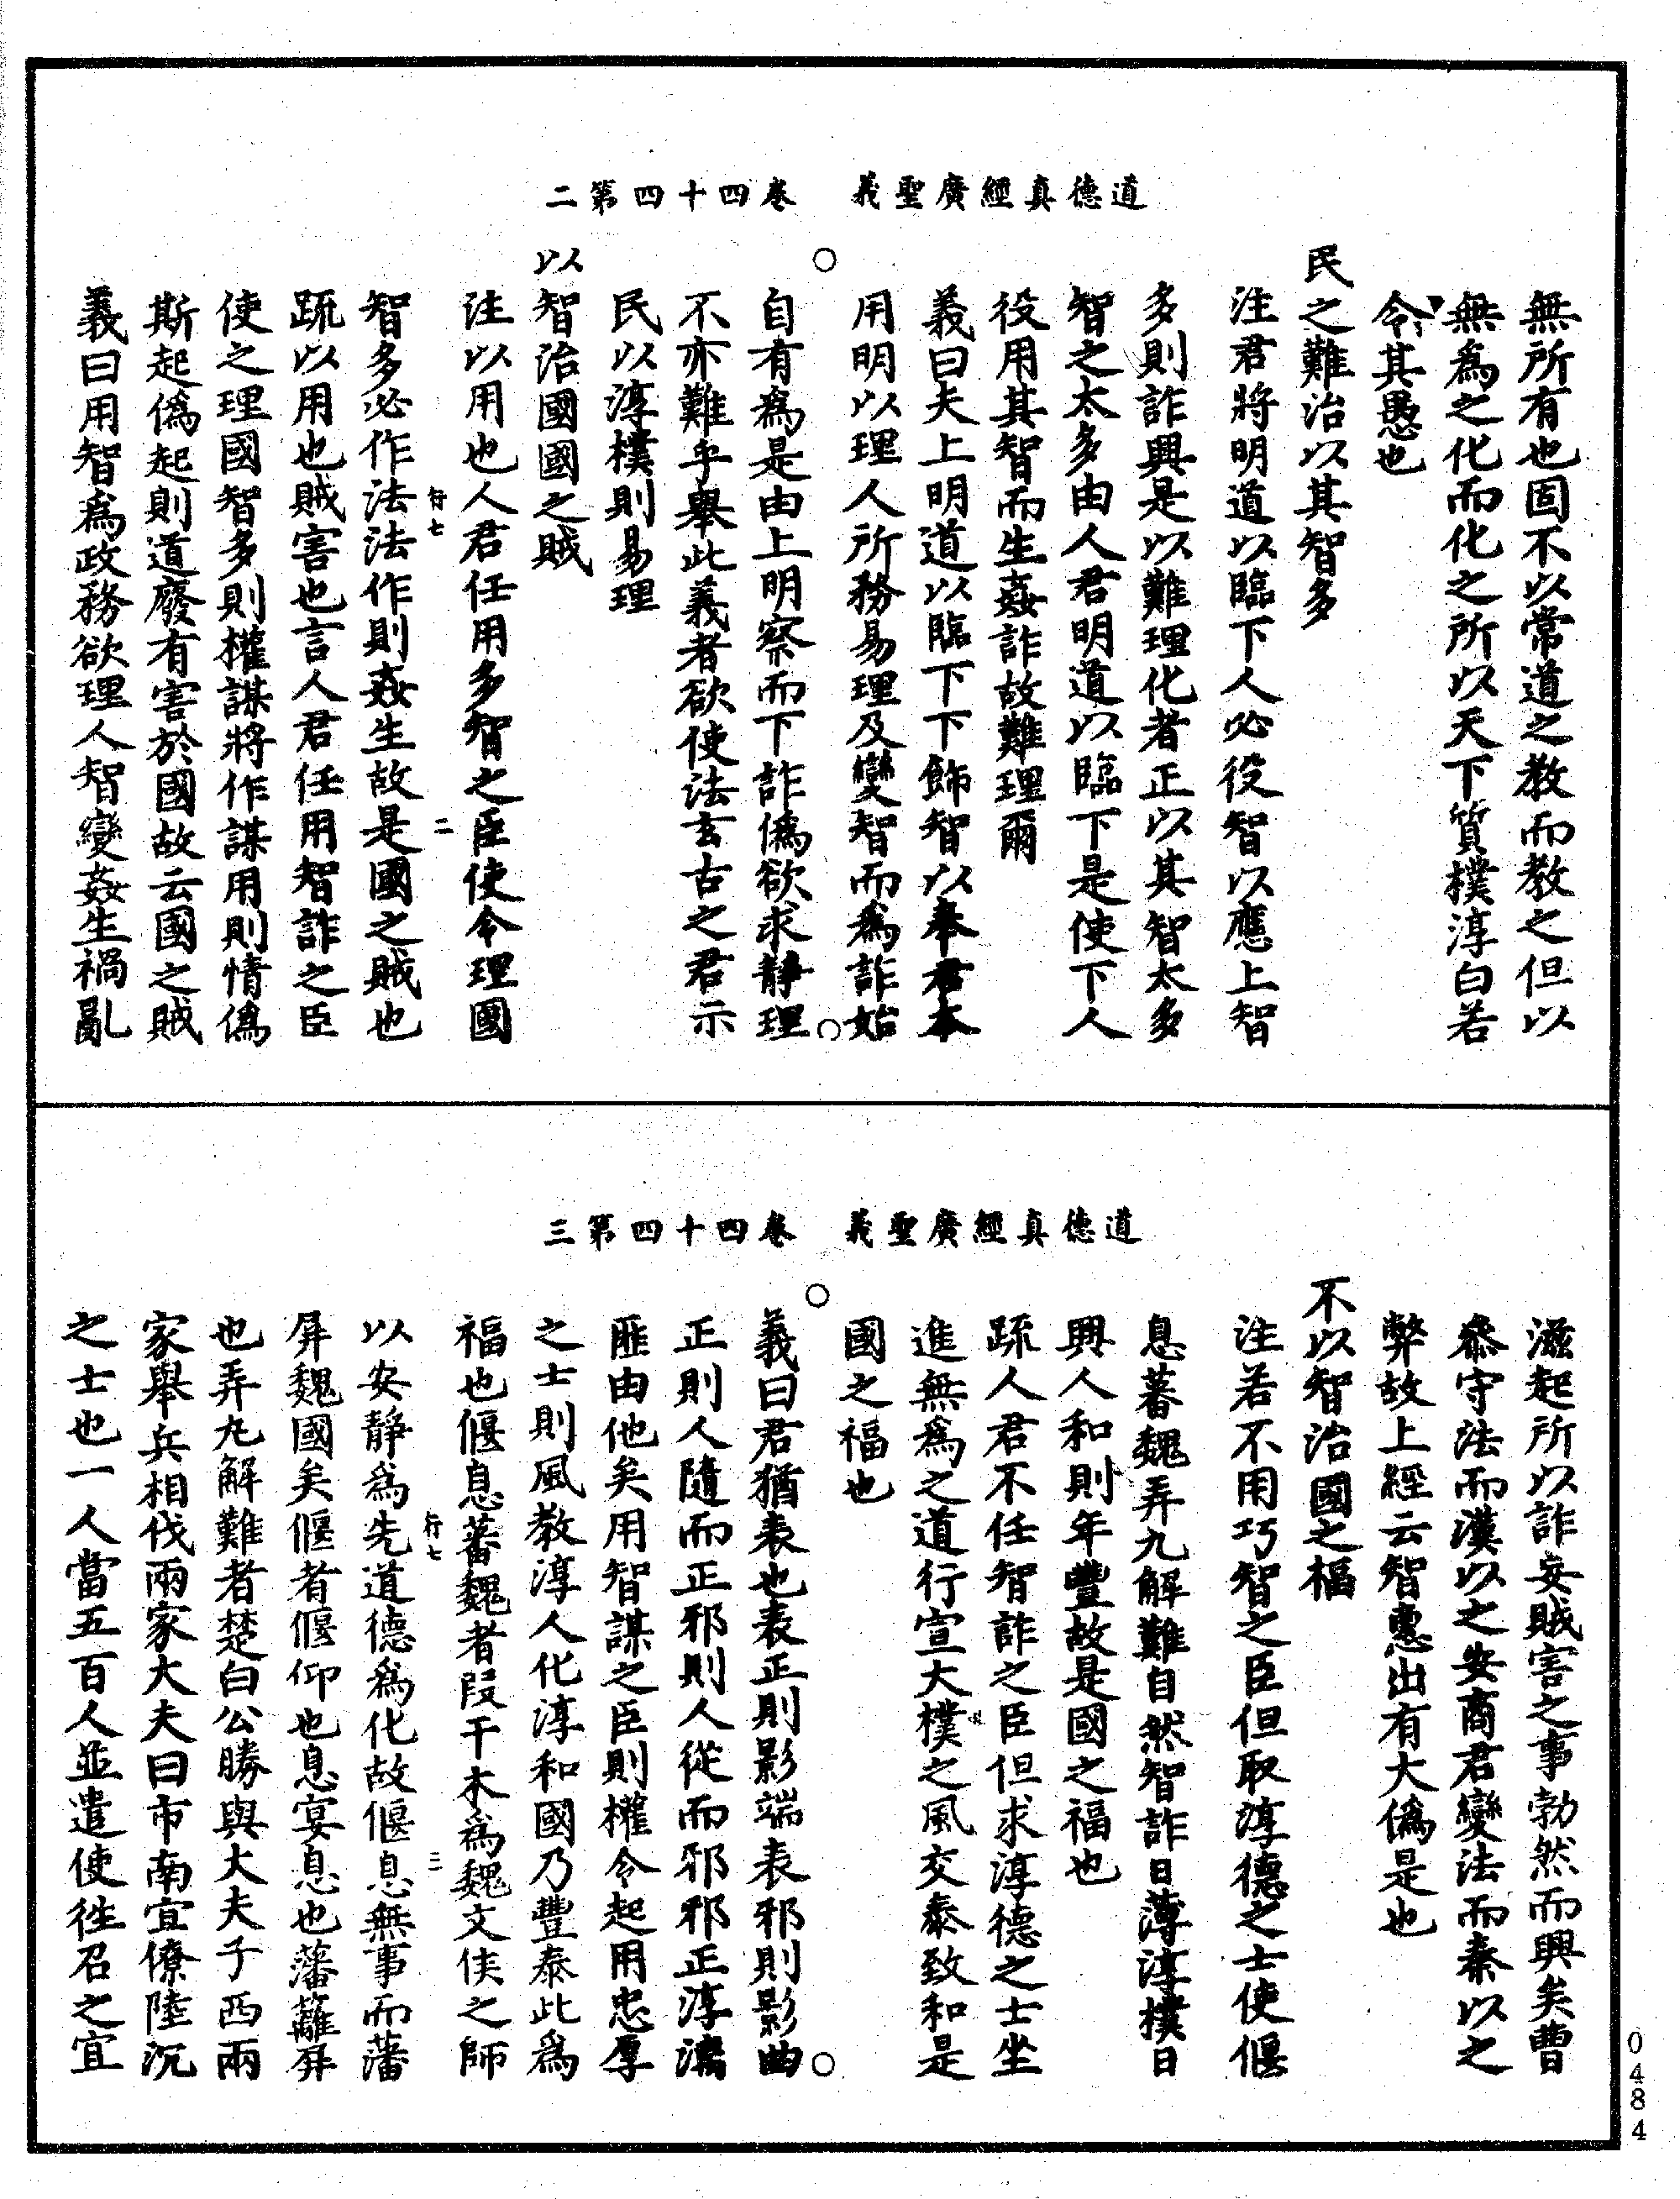 道德真經廣聖義　卷四十四第二
無所有也固不以常道之教而教之但以
無為之化而化之所以天下質樸淳白若
令其愚也
民之難治以其智多
注君將明道以臨下人必役智以應上智
多則詐興是以難理化者正以其智太多
智之太多由人君明道以臨下是使下人
役用其智而生姦詐故難理爾
義曰夫上明道以臨下下飾智以奉君本
用明以理人所務易理及變智而為詐始
自有為是由上明察而下詐偽欲求靜理
不亦難乎舉此義者欲使法玄古之君示
民以淳樸則易理
以智治國國之賊
注以用也人君任用多智之臣使令理國
智多必作法法作則姦生故是國之賊也
行七
二
疏以用也賊害也言人君任用智詐之臣
使之理國智多則權謀將作謀用則情偽
斯起偽起則道廢有害於國故云國之賊
義曰用智為政務欲理人智變姦生禍亂
道德真經廣聖義　卷四十四第三
滋起所以詐妄賊害之事勃然而興矣曹
參守法而漢以之安商君變法而秦以之
弊故上經云智惠出有大偽是也
不以智治國國之福
注若不用巧智之臣但取淳德之士使偃
息蕃魏弄丸解難自然智詐日薄淳樸日
興人和則年豐故是國之福也
疏人君不任智詐之臣但求淳德之士坐
進無為之道行宣大樸之風交泰致和是
國之福也
義曰君猶表也表正則影端表邪則影曲
正則人隨而正邪則人從而邪邪正淳漓
匪由他矣用智謀之臣則權令起用忠厚
之士則風教淳人化淳和國乃豐泰此為
福也偃息蕃魏者段干木為魏文侯之師
以安靜為先道德為化故偃息無事而藩
行七
三
屏魏國矣偃者偃仰也息宴息也藩籬屏
也弄丸解難者楚白公勝與大夫子西兩
家舉兵相伐兩家大夫曰市南宜僚陸沉
之士也一人當五百人並遣使往召之宜
0484